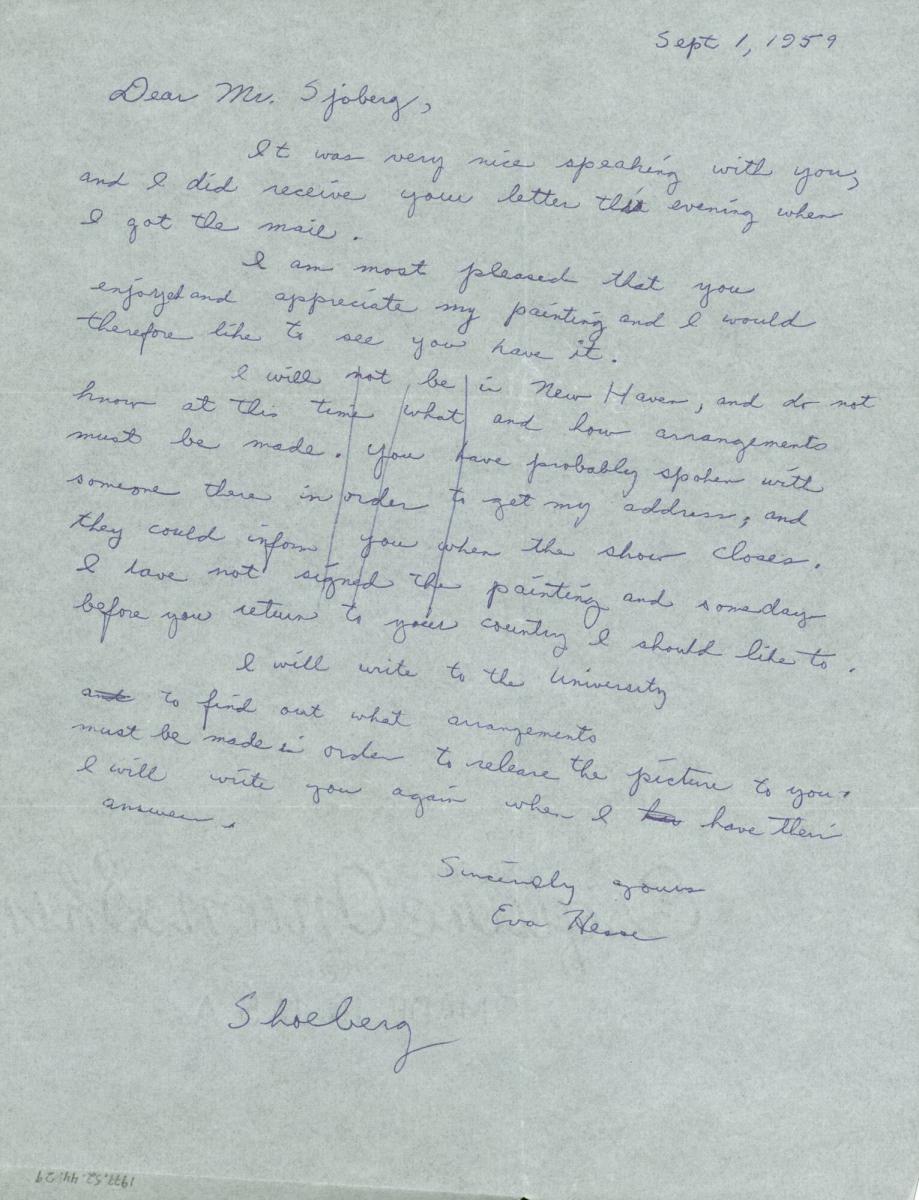 Sept 1, 1959
Dear Mr. Sjoberg,
It was very nice speaking with you,
and I did receive your letter this evening when
I got the mail.
I am most pleased that you
enjoyed and appreciate my painting and I would
therefore like to see you have it.
I will not be in New Haven, and do not
know at this time what and how arrangements
must be made. You have probably spoken with
someone there in order to get my address, and
they could inform you when the show closes.
I have not signed the painting and someday
before you return to your country I should like to.
I will write to the University
and to find out what arrangements
must be made in order to release the picture to you.
I will write you again when I have their
answer.
Sincerely yours
Eva Hesse
Shoeberg
1977.52.44.29